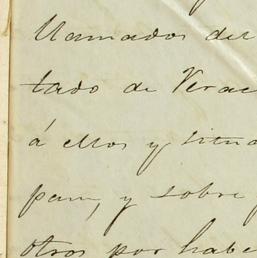 llamados del
tado de Verac
á ellos y situa
pam, y sobre
otros por habe